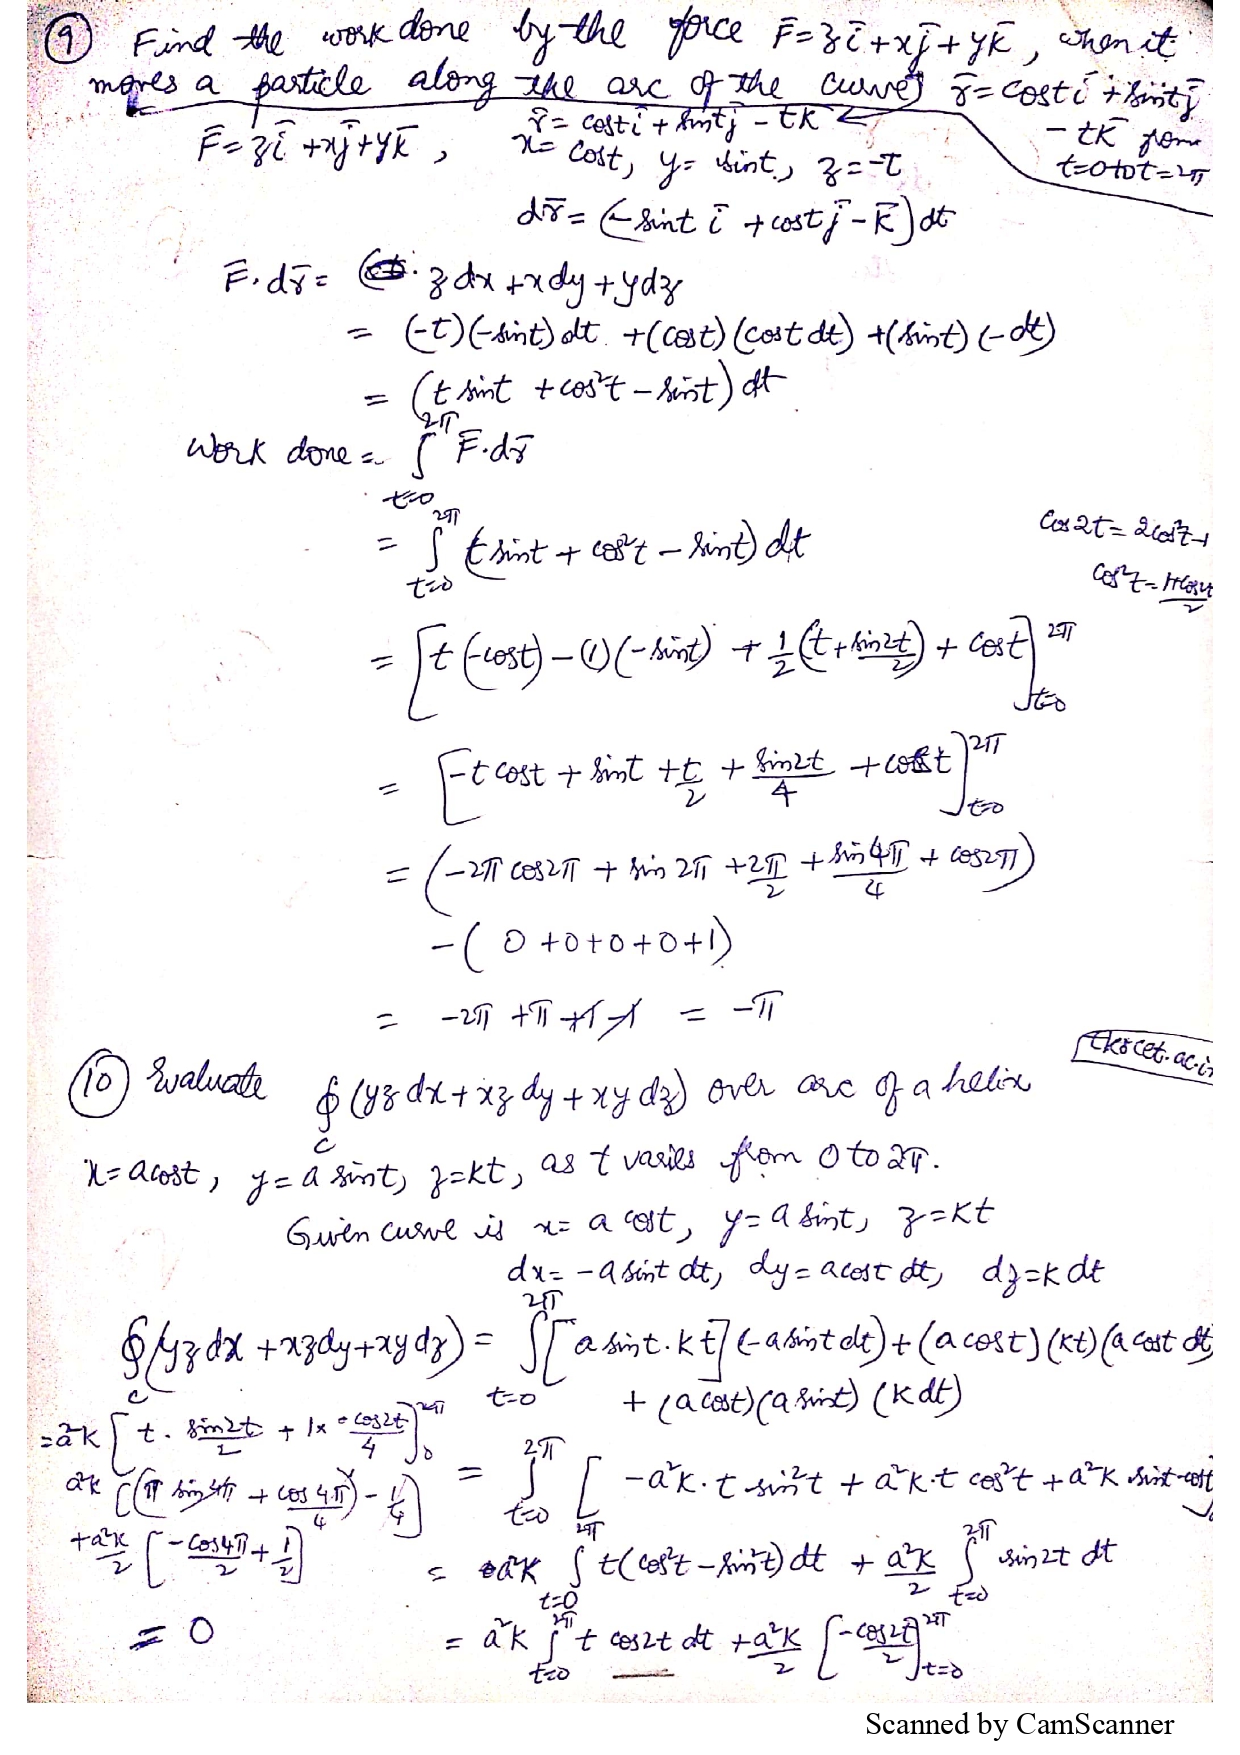 (9) Find the work done by the force F̄ = z ī + x j̄ + y k̄, when it
moves a particle along the arc of the curve r̄ = cost ī + sint j̄
- t k̄ from
t=0 to t=2π
r̄ = cost ī + sint j̄ - t k
F̄ = z ī + x j̄ + y k̄ , x = cost, y = sint, z = -t
dr̄ = (-sint ī + cost j̄ - k̄) dt
F̄.dr̄ = z dx + x dy + y dz
= (-t)(-sint) dt + (cost)(cost dt) + (sint)(-dt)
= (t sint + cos²t - sint) dt
Work done = ∫_{t=0}^{2π} F̄.dr̄
= ∫_{t=0}^{2π} (t sint + cos²t - sint) dt
cos2t = 2cos²t-1
cos²t = (1+cos2t)/2
= [t(-cost) - (1)(-sint) + 1/2 (t + sin2t/2) + cost]_{t=0}^{2π}
= [-t cost + sint + t/2 + sin2t/4 + cost]_{t=0}^{2π}
= (-2π cos2π + sin 2π + 2π/2 + sin 4π/4 + cos2π)
-( 0 + 0 + 0 + 0 + 1)
= -2π + π + 1 - 1 = -π
tkrcet.ac.in
(10) Evaluate ∮_C (yz dx + xz dy + xy dz) over arc of a helix
x = a cost, y = a sint, z = kt, as t varies from 0 to 2π.
Given curve is x = a cost, y = a sint, z = kt
dx = -a sint dt, dy = a cost dt, dz = k dt
∮_C (yz dx + xz dy + xy dz) = ∫_{t=0}^{2π} [a sint . kt] (-a sint dt) + (a cost)(kt)(a cost dt)
+ (a cost)(a sint)(k dt)
= ∫_{t=0}^{2π} [ -a²k.t sin²t + a²k.t cos²t + a²k sint cost]
= a²k ∫_{t=0}^{2π} t(cos²t - sin²t) dt + a²k/2 ∫_{t=0}^{2π} sin2t dt
= a²k ∫_{t=0}^{2π} t cos2t dt + a²k/2 [-cos2t/2]_{t=0}^{2π}
= a²k [t . sin2t/2 + 1x cos2t/4]_0^{2π}
a²k [(π sin4π + cos 4π/4) - 1/4]
+ a²k/2 [-cos4π/2 + 1/2]
= 0
Scanned by CamScanner